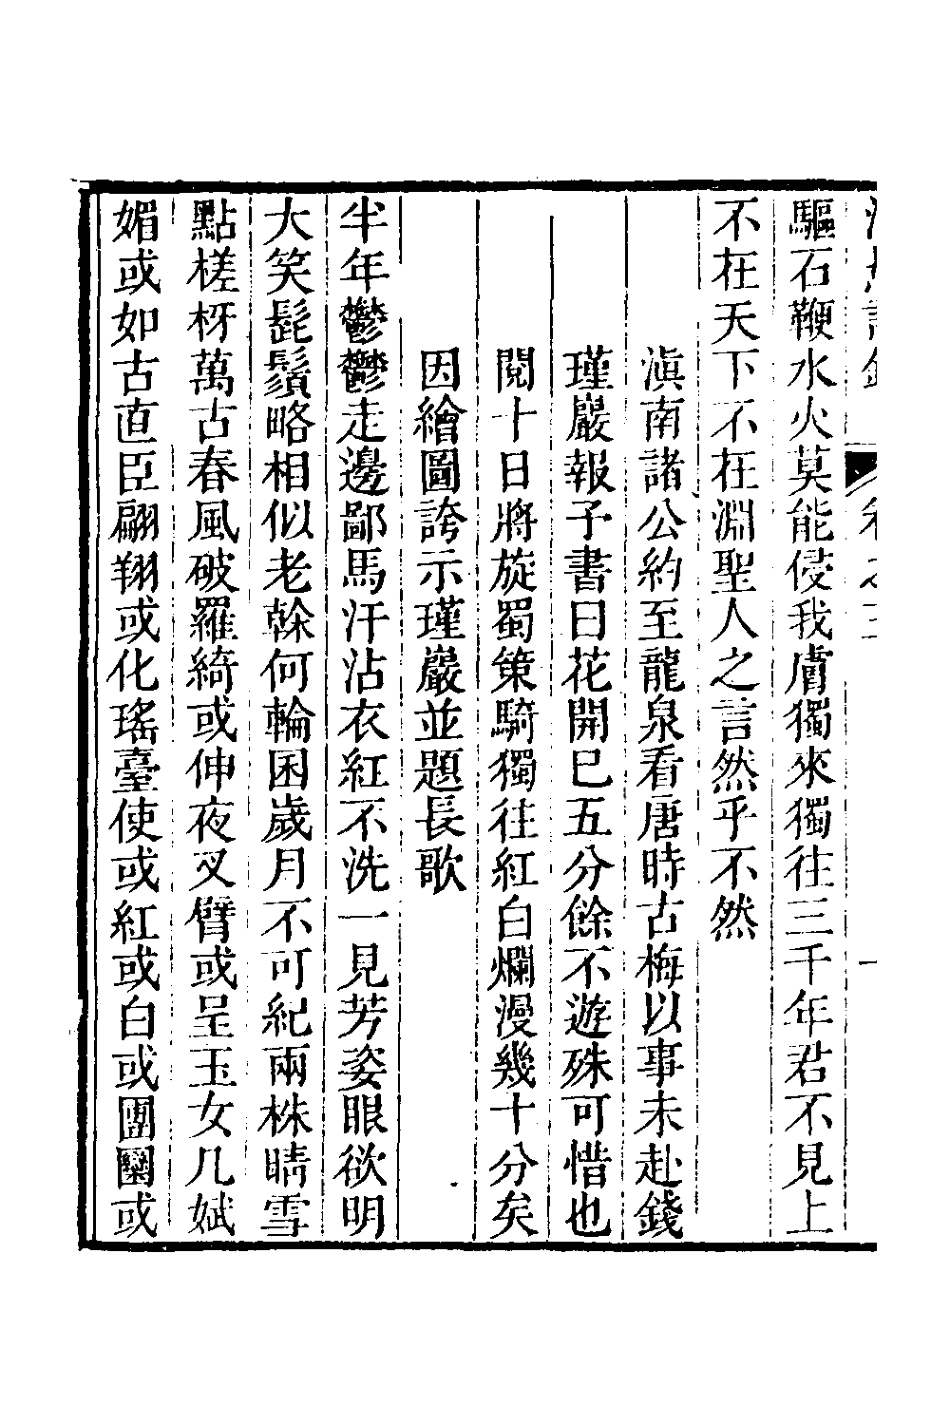 驅石鞭水火莫能侵我膚獨來獨往三千年君不見上
不在天下不在淵聖人之言然乎不然
滇南諸公約至龍泉看唐時古梅以事未赴錢
瑾巖報予書曰花開巳五分餘不遊殊可惜也
閱十日將旋蜀策騎獨往紅白爛漫幾十分矣
因繪圖誇示瑾巖並題長歌
半年鬱鬱走邊鄙馬汗沾衣紅不洗一見芳姿眼欲明
大笑髭鬚略相似老榦何輪囷歲月不可紀兩株晴雪
點槎枒萬古春風破羅綺或伸夜叉臂或呈玉女几斌
媚或如古直臣翩翔或化瑤臺使或紅或白或團圞或